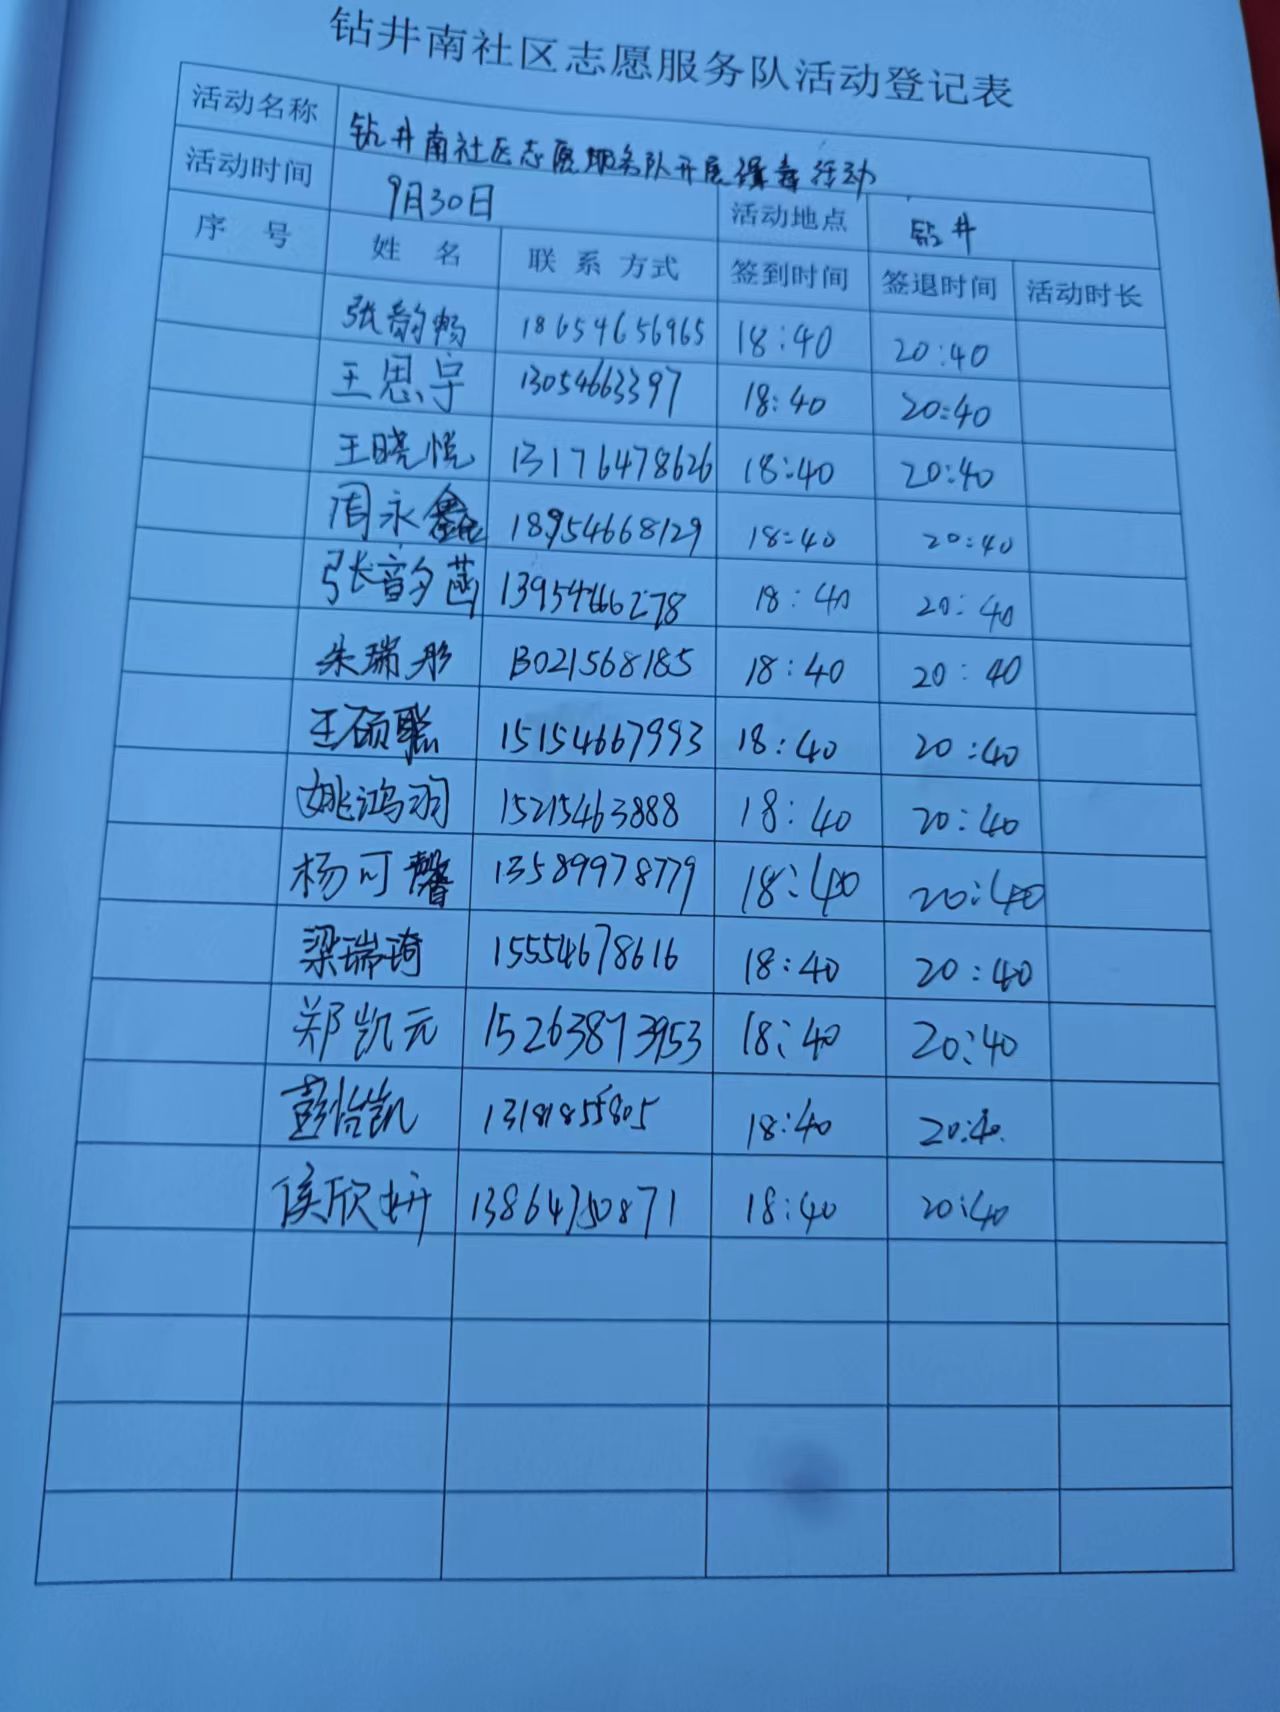 钻井南社区志愿服务队活动登记表
活动名称 钻井南社区志愿服务队开展活动
活动时间 9月30日 活动地点 钻井
序 号 姓 名 联 系 方式 签到时间 签退时间 活动时长
张韵畅 18654656965 18:40 20:40
王思宇 13054663397 18:40 20:40
王晓悦 13176478626 18:40 20:40
周永鑫 18954668129 18:40 20:40
张韵菡 18:40 20:40
朱瑞彤 13021568185 18:40 20:40
王硕聪 15154667993 18:40 20:40
姚鸿羽 15215463888 18:40 20:40
杨可馨 13589978779 18:40 20:40
梁瑞琦 15554678616 18:40 20:40
郑凯元 15263873953 18:40 20:40
彭怡凯 13181855805 18:40 20:40
侯欣妍 13864750871 18:40 20:40